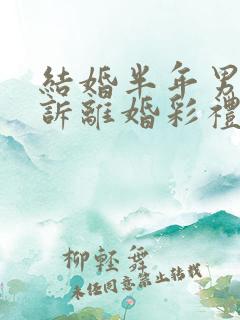 結婚半年男
訴離婚彩禮
柳輕舞
未経同意禁止轉載